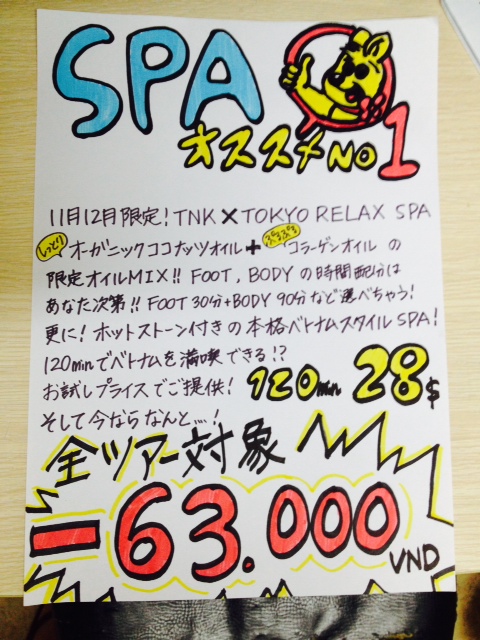 SPA
オススメNO1
11月12月限定！TNK×TOKYO RELAX SPA
しっとり ぷるぷる
オーガニックココナッツオイル＋コラーゲンオイル の
限定オイルMIX!! FOOT, BODYの時間配分は
あなた次第!! FOOT 30分+BODY 90分など選べちゃう!
更に! ホットストーン付きの本格ベトナムスタイルSPA!
120minでベトナムを満喫できる!?
お試しプライスでご提供! 120min 28$
そして今ならなんと…!
全ツアー対象
-63.000 VND